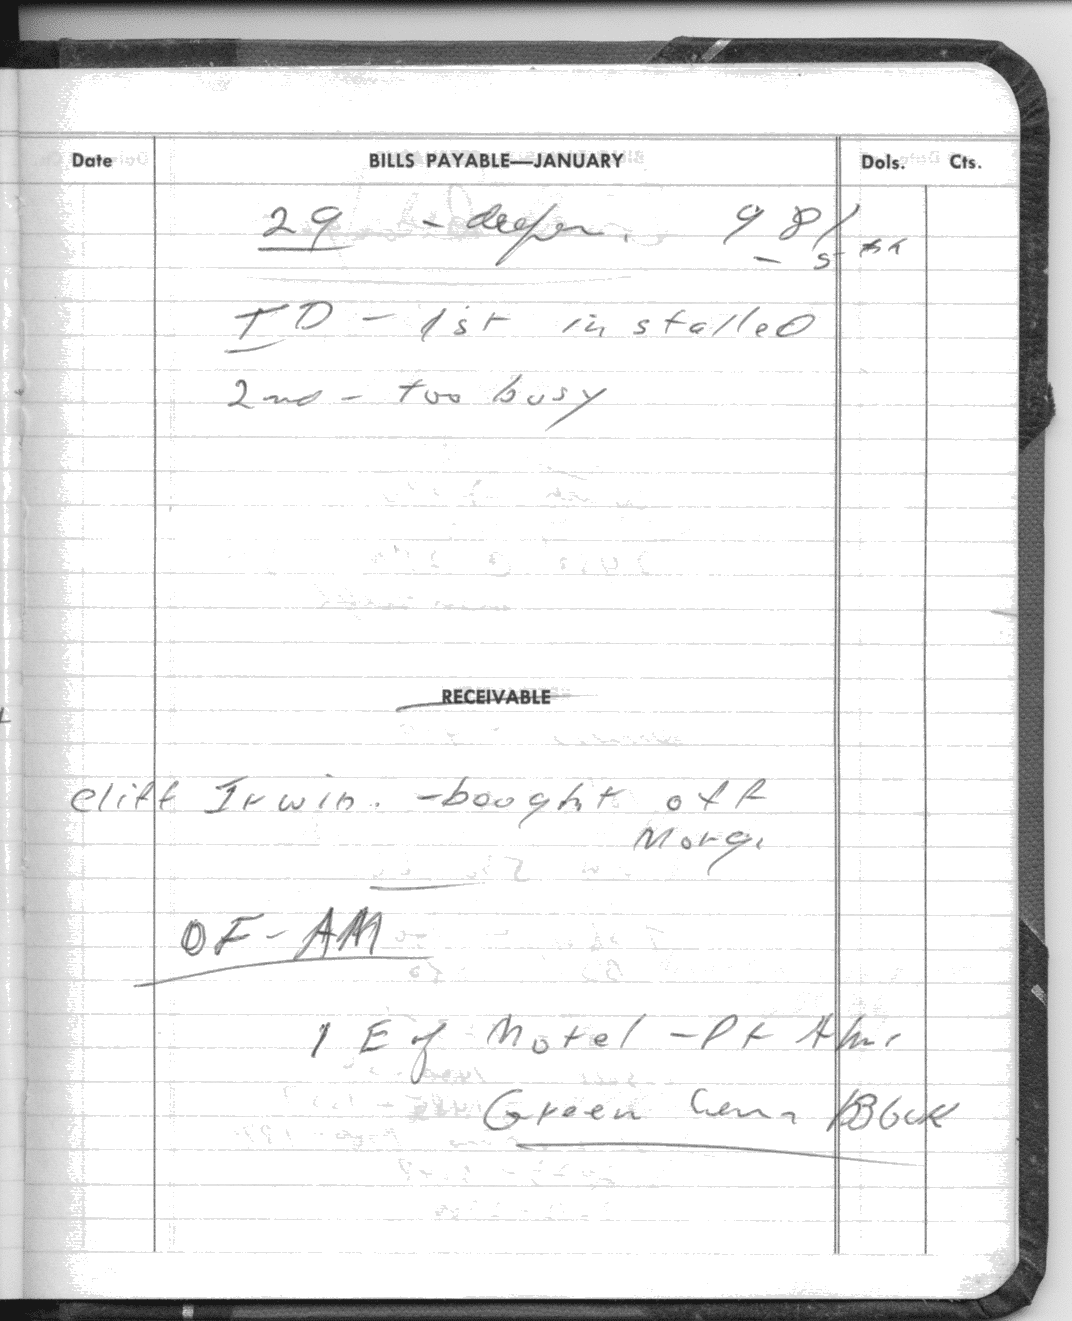 Date BILLS PAYABLE—JANUARY Dols. Cts.
29 - deeper. 981
- 5
TD - 1st installed
2nd - too busy
RECEIVABLE
Cliff Irwin. - bought off
Morg.
OF-AM
1 E of Motel - Pt
Green Block